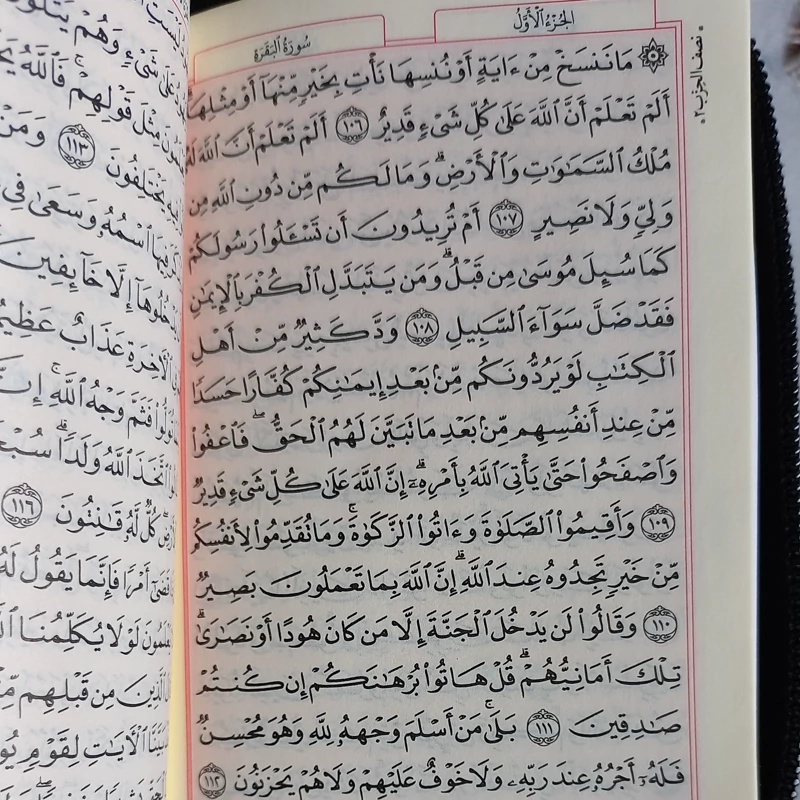 الجزء الأول
سورة البقرة
نصف الحزب ٢
۞ مَا نَنسَخْ مِنْ ءَايَةٍ أَوْ نُنسِهَا نَأْتِ بِخَيْرٍ مِّنْهَآ أَوْ مِثْلِهَآ
أَلَمْ تَعْلَمْ أَنَّ ٱللَّهَ عَلَىٰ كُلِّ شَىْءٍ قَدِيرٌ ١٠٦ أَلَمْ تَعْلَمْ أَنَّ ٱللَّهَ لَهُۥ
مُلْكُ ٱلسَّمَٰوَٰتِ وَٱلْأَرْضِ ۗ وَمَا لَكُم مِّن دُونِ ٱللَّهِ مِن
وَلِىٍّ وَلَا نَصِيرٍ ١٠٧ أَمْ تُرِيدُونَ أَن تَسْـَٔلُوا۟ رَسُولَكُمْ
كَمَا سُئِلَ مُوسَىٰ مِن قَبْلُ ۗ وَمَن يَتَبَدَّلِ ٱلْكُفْرَ بِٱلْإِيمَٰنِ
فَقَدْ ضَلَّ سَوَآءَ ٱلسَّبِيلِ ١٠٨ وَدَّ كَثِيرٌ مِّنْ أَهْلِ
ٱلْكِتَٰبِ لَوْ يَرُدُّونَكُم مِّنۢ بَعْدِ إِيمَٰنِكُمْ كُفَّارًا حَسَدًا
مِّنْ عِندِ أَنفُسِهِم مِّنۢ بَعْدِ مَا تَبَيَّنَ لَهُمُ ٱلْحَقُّ ۖ فَٱعْفُوا۟
وَٱصْفَحُوا۟ حَتَّىٰ يَأْتِىَ ٱللَّهُ بِأَمْرِهِۦٓ ۗ إِنَّ ٱللَّهَ عَلَىٰ كُلِّ شَىْءٍ قَدِيرٌ
١٠٩ وَأَقِيمُوا۟ ٱلصَّلَوٰةَ وَءَاتُوا۟ ٱلزَّكَوٰةَ ۚ وَمَا تُقَدِّمُوا۟ لِأَنفُسِكُم
مِّنْ خَيْرٍ تَجِدُوهُ عِندَ ٱللَّهِ ۗ إِنَّ ٱللَّهَ بِمَا تَعْمَلُونَ بَصِيرٌ
١١٠ وَقَالُوا۟ لَن يَدْخُلَ ٱلْجَنَّةَ إِلَّا مَن كَانَ هُودًا أَوْ نَصَٰرَىٰ ۗ
تِلْكَ أَمَانِيُّهُمْ ۗ قُلْ هَاتُوا۟ بُرْهَٰنَكُمْ إِن كُنتُمْ
صَٰدِقِينَ ١١١ بَلَىٰ مَنْ أَسْلَمَ وَجْهَهُۥ لِلَّهِ وَهُوَ مُحْسِنٌ
فَلَهُۥٓ أَجْرُهُۥ عِندَ رَبِّهِۦ وَلَا خَوْفٌ عَلَيْهِمْ وَلَا هُمْ يَحْزَنُونَ ١١٢
شَىْءٍ وَهُمْ يَتْلُونَ
مِثْلَ قَوْلِهِمْ ۚ فَٱللَّهُ
يَخْتَلِفُونَ ١١٣ وَمَنْ
فِيهَا ٱسْمُهُۥ وَسَعَىٰ فِى
إِلَّا خَآئِفِينَ
ٱلْأَخِرَةِ عَذَابٌ عَظِيمٌ
فَثَمَّ وَجْهُ ٱللَّهِ ۚ إِنَّ
ٱتَّخَذَ ٱللَّهُ وَلَدًا ۗ
كُلٌّ لَّهُۥ قَٰنِتُونَ ١١٦
أَمْرًا فَإِنَّمَا يَقُولُ لَهُۥ
لَوْلَا يُكَلِّمُنَا
ٱلَّذِينَ مِن قَبْلِهِم
ٱلْأَيَٰتِ لِقَوْمٍ